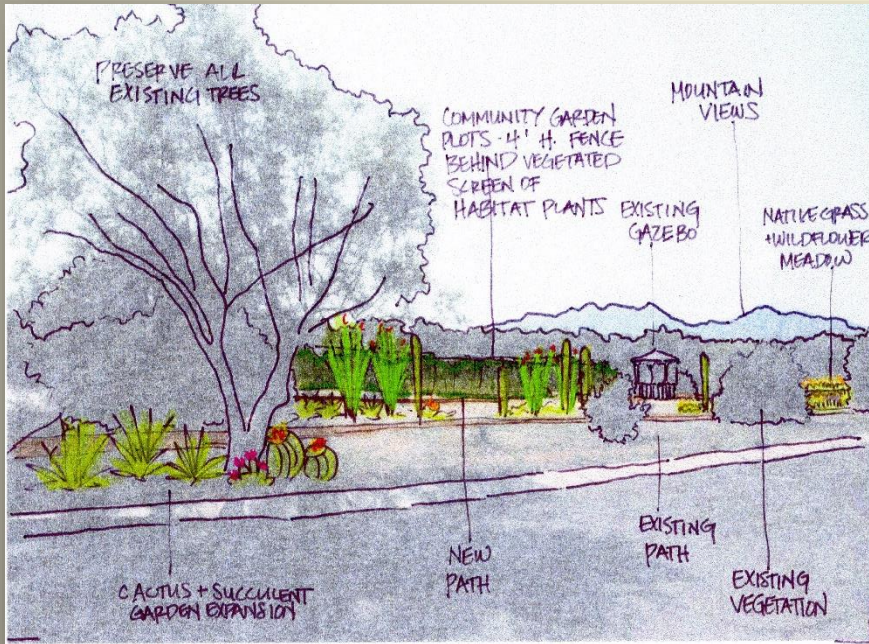 PRESERVE ALL
EXISTING TREES
COMMUNITY GARDEN
PLOTS - 4' H. FENCE
BEHIND VEGETATED
SCREEN OF
HABITAT PLANTS
MOUNTAIN
VIEWS
EXISTING
GAZEBO
NATIVE GRASS
+WILDFLOWER
MEADOW
CACTUS + SUCCULENT
GARDEN EXPANSION
NEW
PATH
EXISTING
PATH
EXISTING
VEGETATION